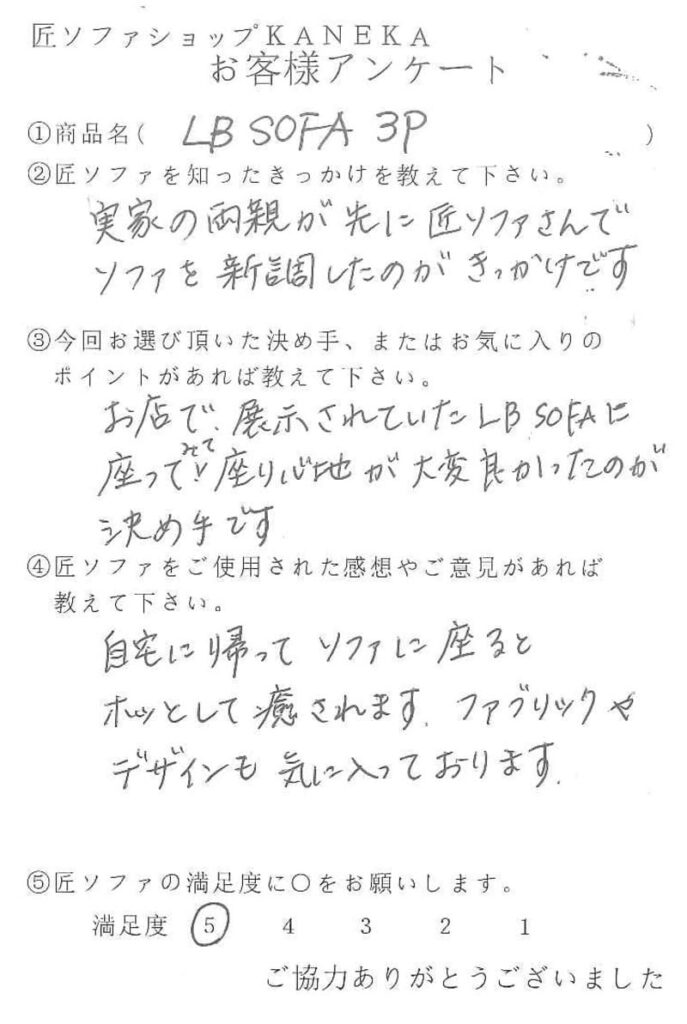 匠ソファショップKANEKA
お客様アンケート
①商品名( LB SOFA 3P )
②匠ソファを知ったきっかけを教えて下さい。
実家の両親が先に匠ソファさんで
ソファを新調したのがきっかけです
③今回お選び頂いた決め手、またはお気に入りの
ポイントがあれば教えて下さい。
お店で、展示されていたLB SOFAに
座ってみて座り心地が大変良かったのが
決め手です
④匠ソファをご使用された感想やご意見があれば
教えて下さい。
自宅に帰ってソファに座ると
ホッとして癒されます。ファブリックや
デザインも気に入っております。
⑤匠ソファの満足度に〇をお願いします。
満足度 5 4 3 2 1
ご協力ありがとうございました